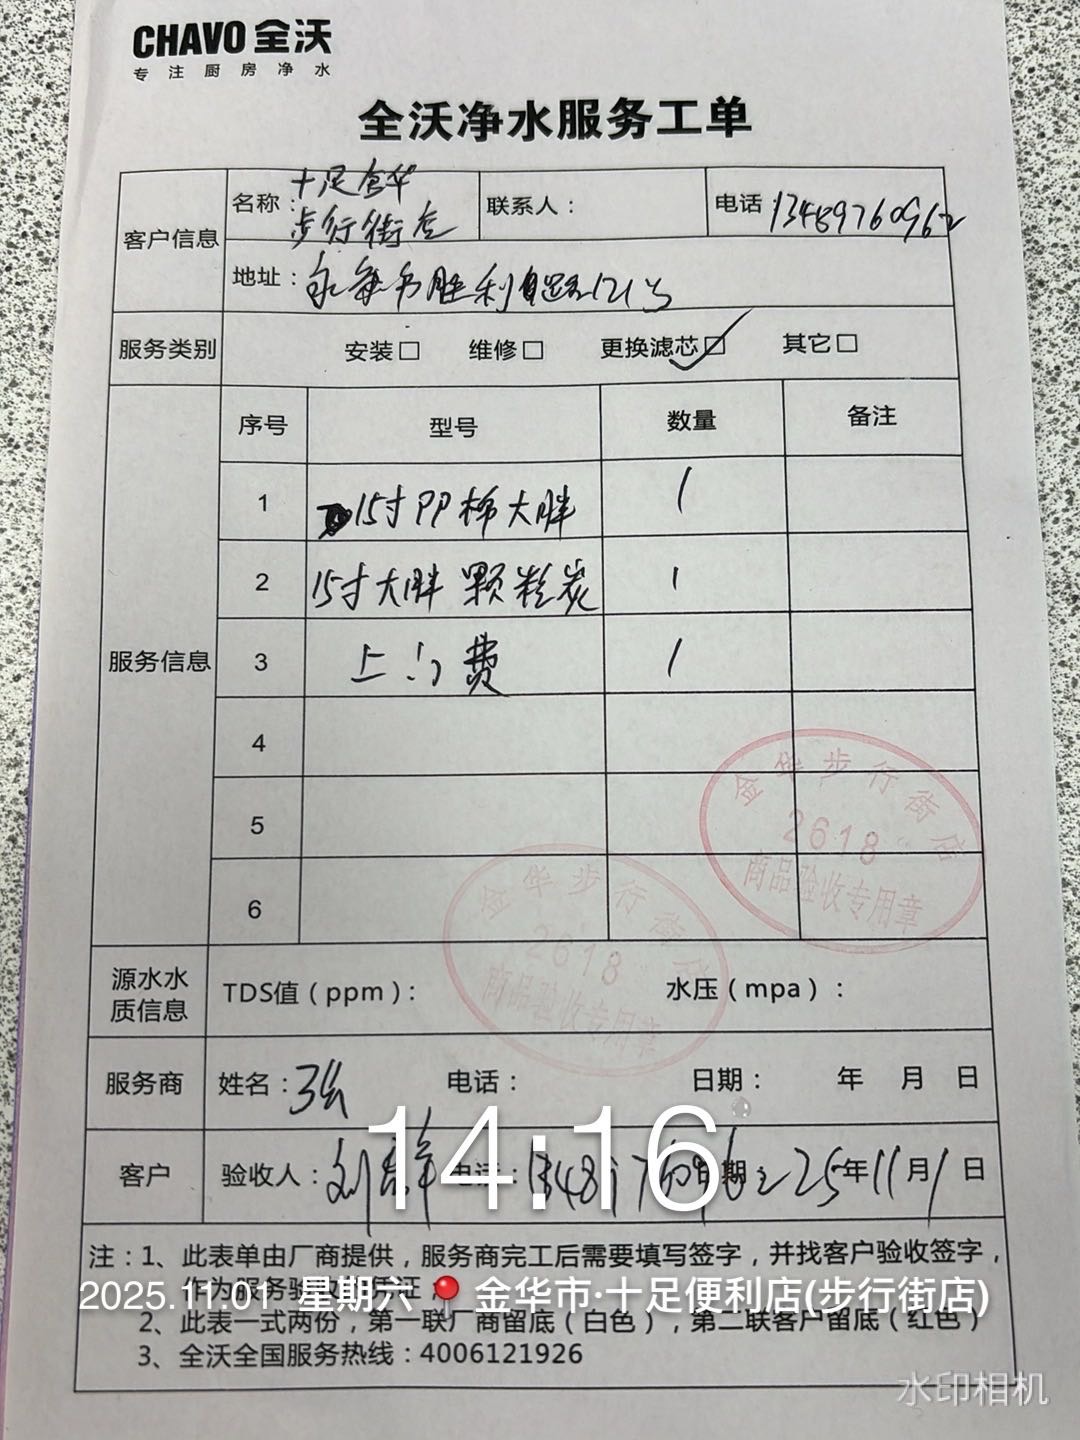 CHAVO 全沃
专注厨房净水
全沃净水服务工单
客户信息
名称：十足金华
步行街店
联系人：
电话 13489760962
地址：永 胜利 路121号
服务类别 安装□ 维修□ 更换滤芯□ 其它□
服务信息
序号 型号 数量 备注
1 15寸PP棉大胖 1
2 15寸大胖 颗粒炭 1
3 上门费 1
4
5
6
金华步行街店
2618
商品验收专用章
金华步行街店
2618
商品验收专用章
源水水质信息 TDS值（ppm）： 水压（mpa）：
服务商 姓名： 电话： 日期： 年 月 日
14:16
客户 验收人：刘 电话： 日期： 25年11月1日
注：1、此表单由厂商提供，服务商完工后需要填写签字，并找客户验收签字，
作为服务验收凭证；
2025.11.01 星期六 📍 金华市·十足便利店(步行街店)
2、此表一式两份，第一联厂商留底（白色），第二联客户留底（红色）
3、全沃全国服务热线：4006121926
水印相机